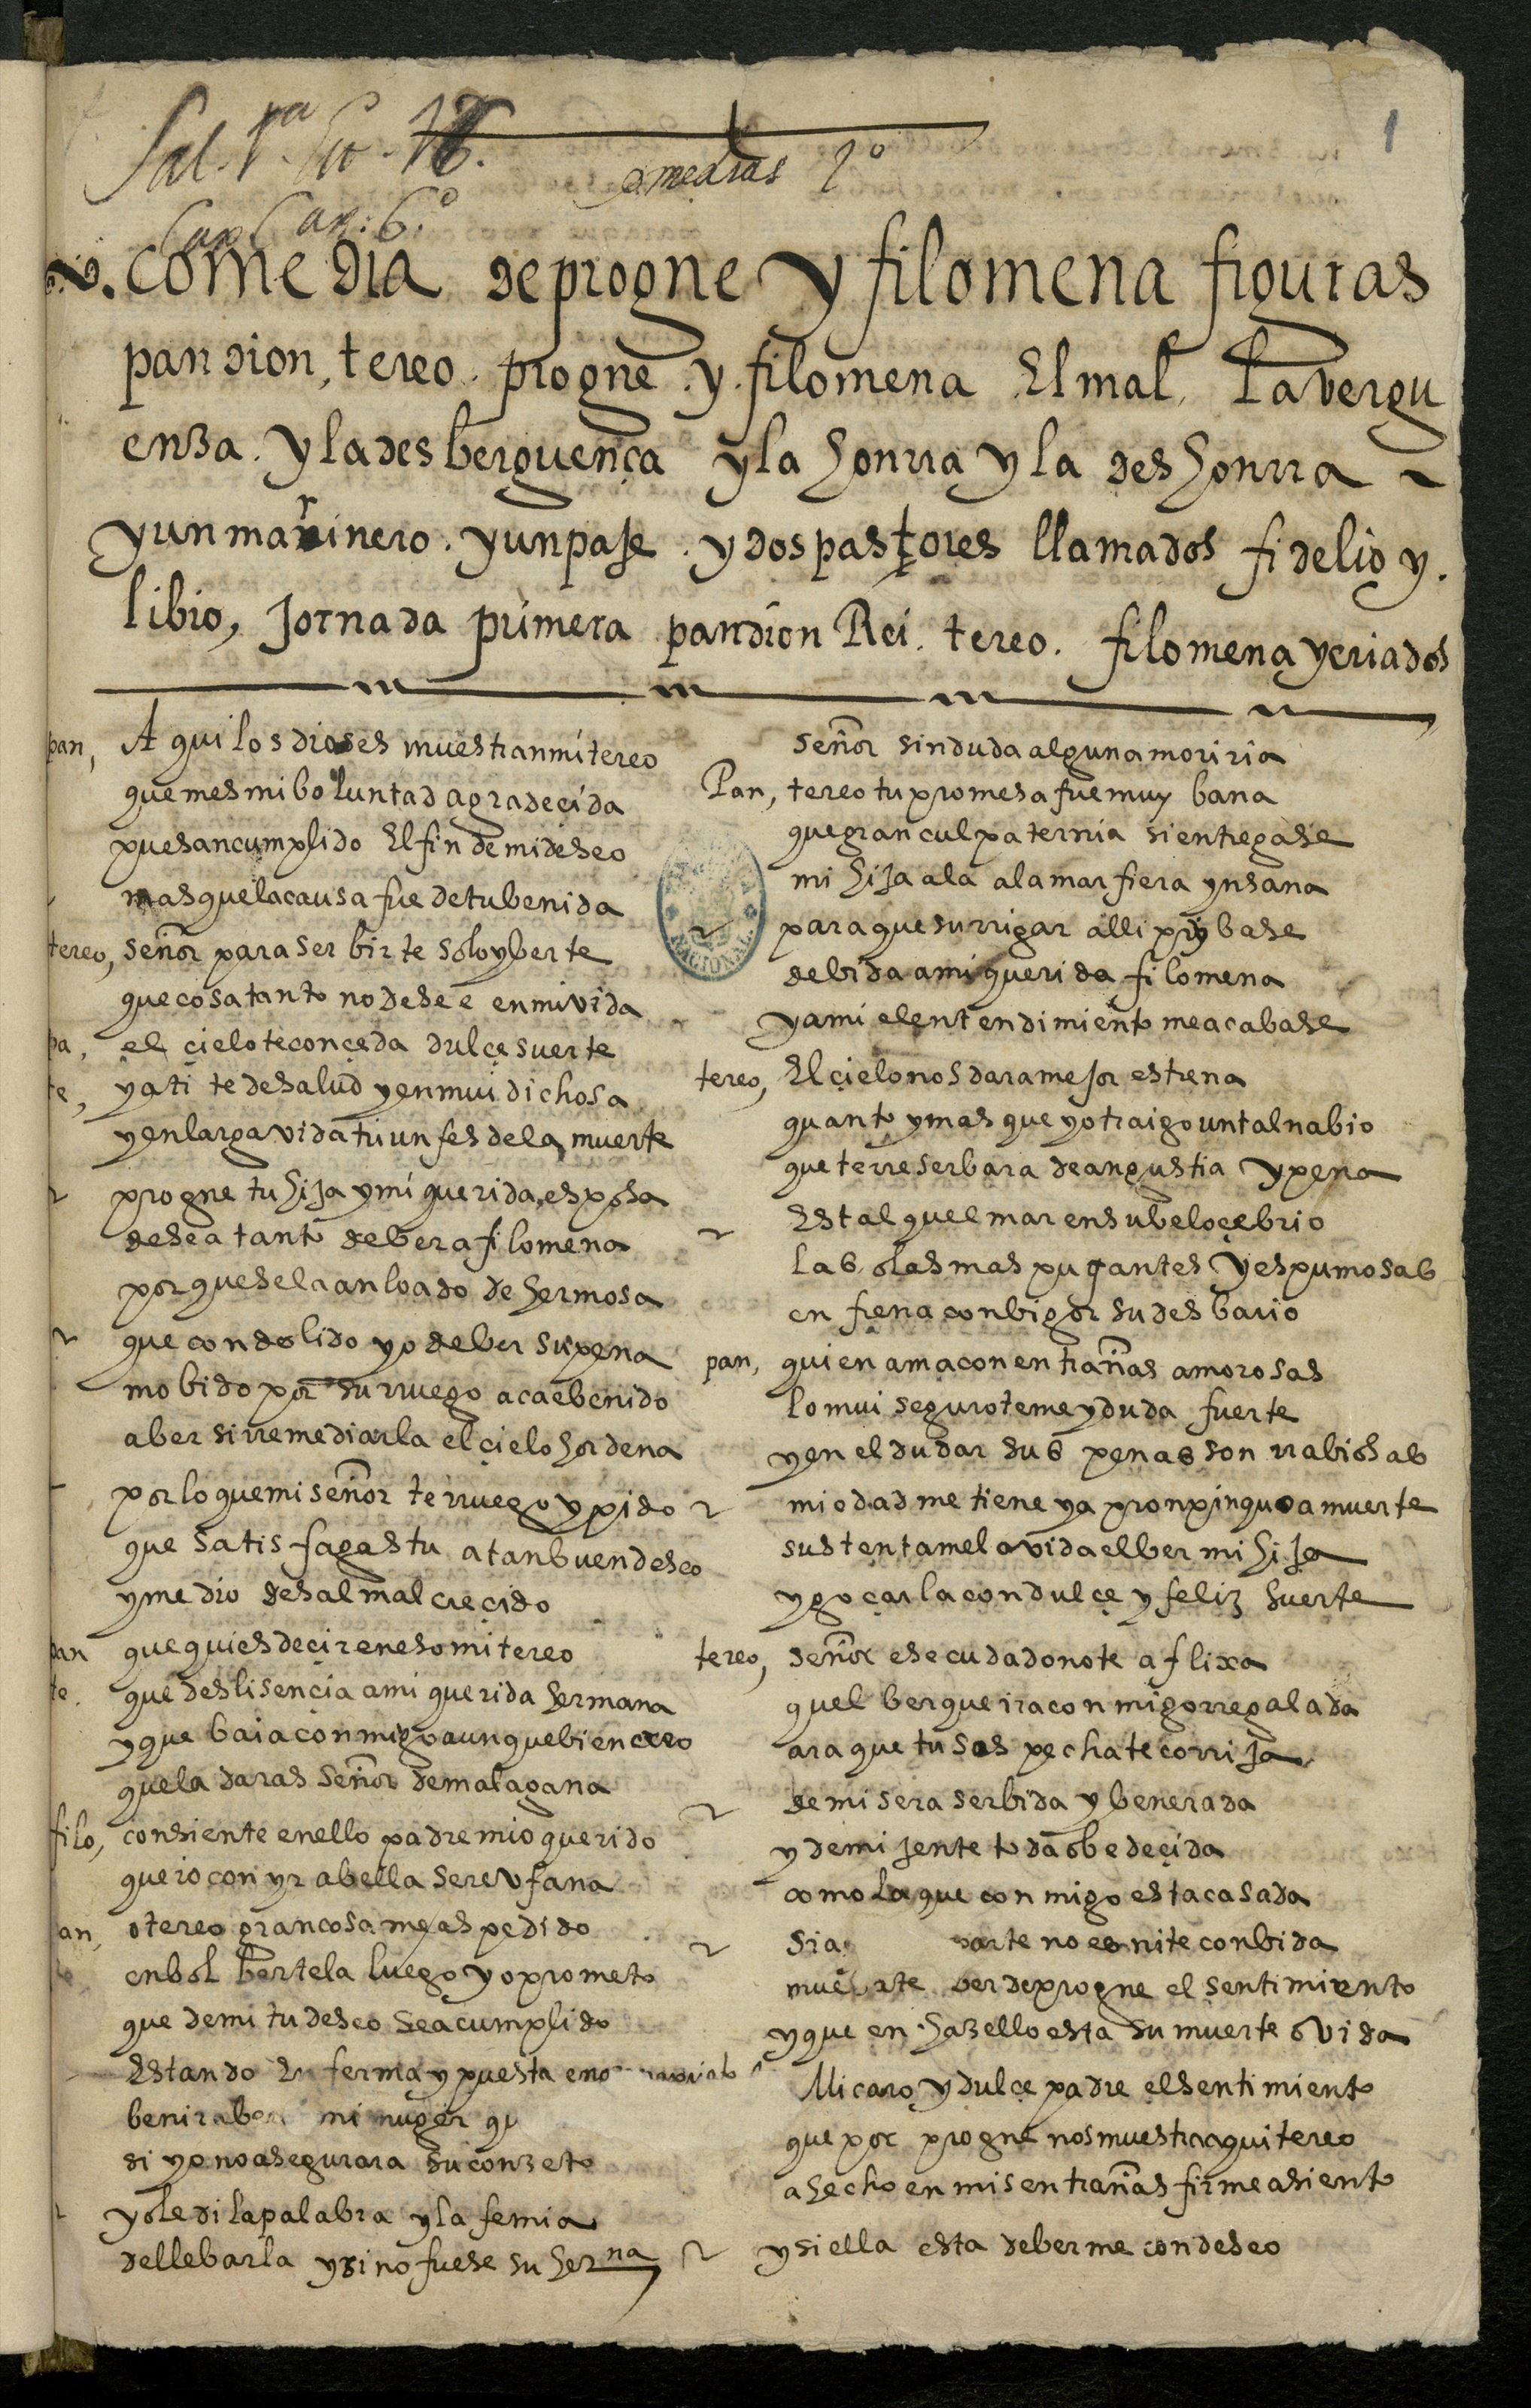 1
Sal. 1ª
comedias 1º
Cax: 6º
comedia de progne y filomena figuras
pandion, tereo. progne. y. filomena El mal. La vergu
enza. y la desberguença y la honrra y la deshonrra
y un marinero. y un paje. y dos pastores llamados fidelio y.
libio, Jornada primera pandion Rei. tereo. filomena y criados
pan, Aqui los dioses muestran mi tereo
que mes mi boluntad agradeçida
pues an cumplido El fin de mi deseo
mas que la causa fue de tu benida
tereo, señor para serbirte solo y berte
que cosa tanto no desee en mi vida
pa, el çielo te conçeda dulçe suerte
te, y a ti te de salud y en mui dichosa
y en larga vida triunfes de la muerte
progne tu hija y mi querida esposa
desea tanto de ber a filomena
porques ela an loado de hermosa
que condolido yo de ber su pena
mobido por su rruego aca e benido
a ber si rremediarla el çielo hordena
por lo que mi señor te rruego y pido
que satisfagas tu a tan buen deseo
y medio des al mal creçido
pan que quies deçir en eso mi tereo
te. que des lisençia a mi querida hermana
y que baia conmigo aunque bien creo
que la daras señor de mala gana
filo, consiente en ello padre mio querido
que io con yr a bella sere ufana
pan, o tereo gran cosa me as pedido
te enbol bertela luego yo prometo
que de mi tu deseo sea cumplido
Estando Enferma y puesta en
benir a ber mi muger
si yo no asegurara su conzeto
yo le di la palabra y la femia
de llebarla y si no fuese su herna
señor sin duda alguna moriria
Pan, tereo tu promesa fue muy bana
que gran culpa ternia si entregase
mi hija a la a la mar fiera ynsana
NACIONAL
para que su rrigar alli pribase
de bida a mi querida filomena
y a mi el entendimiento me acabase
tereo, El çielo nos dara mejor estrena
quanto y mas que yo traigo un tal nabio
que te rreserbara de angustia y pena
Es tal quel mar en su beloçe brio
las olas mas pujantes y espumosas
enfrena con bigor su desbario
pan, quien ama con entrañas amorosas
lo mui seguro teme y duda fuerte
y en el dudar sus penas son rrabiosas
mi edad me tiene ya pronpinquoa muerte
sustentame la vida el ber mi hija
y goçarla con dulçe y feliz suerte
tereo, señor ese cudado no te aflixa
quel ber que ira conmigo rregalada
ara que tu sospecha te corrija
de mi sera serbida y benerada
y de mi jente toda obedeçida
como la que conmigo esta casada
Si a parte no es ni te conbida
muebate ver de progne el sentimiento
y que en hazello esta su muerte o vida
Mi caro y dulçe padre el sentimiento
que por progne nos muestra aqui tereo
a hecho en mis entrañas firme asiento
y si ella esta de berme con deseo